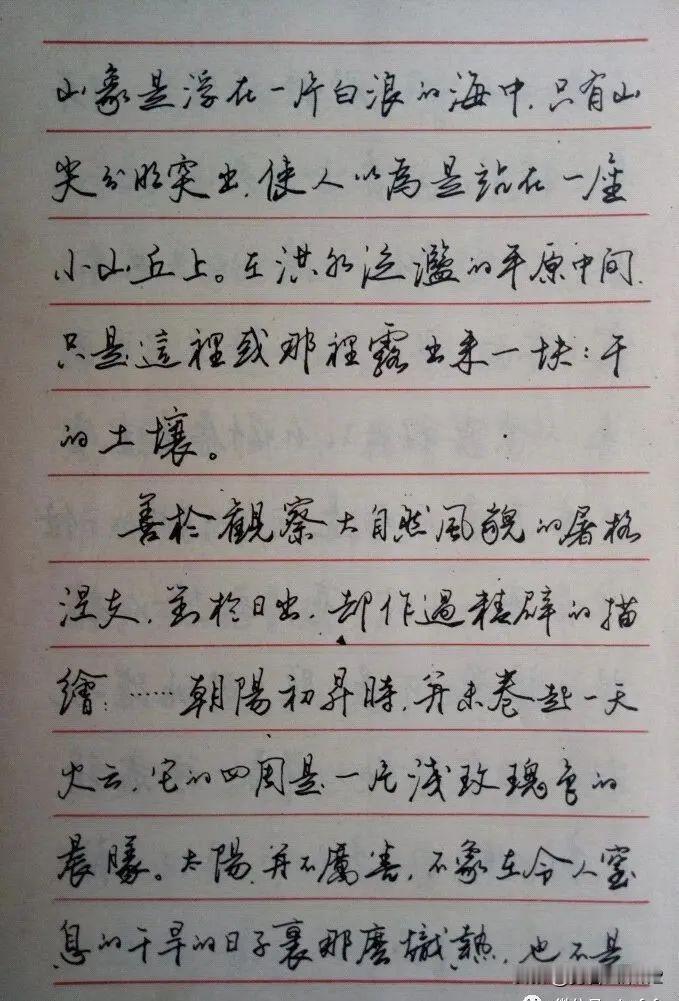 山象是浮在一片白浪的海中，只有山
尖分明突出，使人以為是站在一座
小山丘上。在洪水泛濫的平原中間，
只是這裡或那裡露出来一块：干
的土壤。
善於觀察大自然風貌的屠格
涅夫，對於日出，却作過精辟的描
繪：……朝陽初昇時，并未卷起一天
火云，它的四周是一片浅玫瑰色的
晨曦。太陽，并不厲害，不象在令人窒
息的干旱的日子裏那麽熾熱，也不是